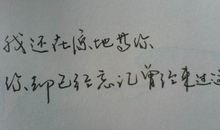 我还在原地等你
你却已经忘记曾经来过这